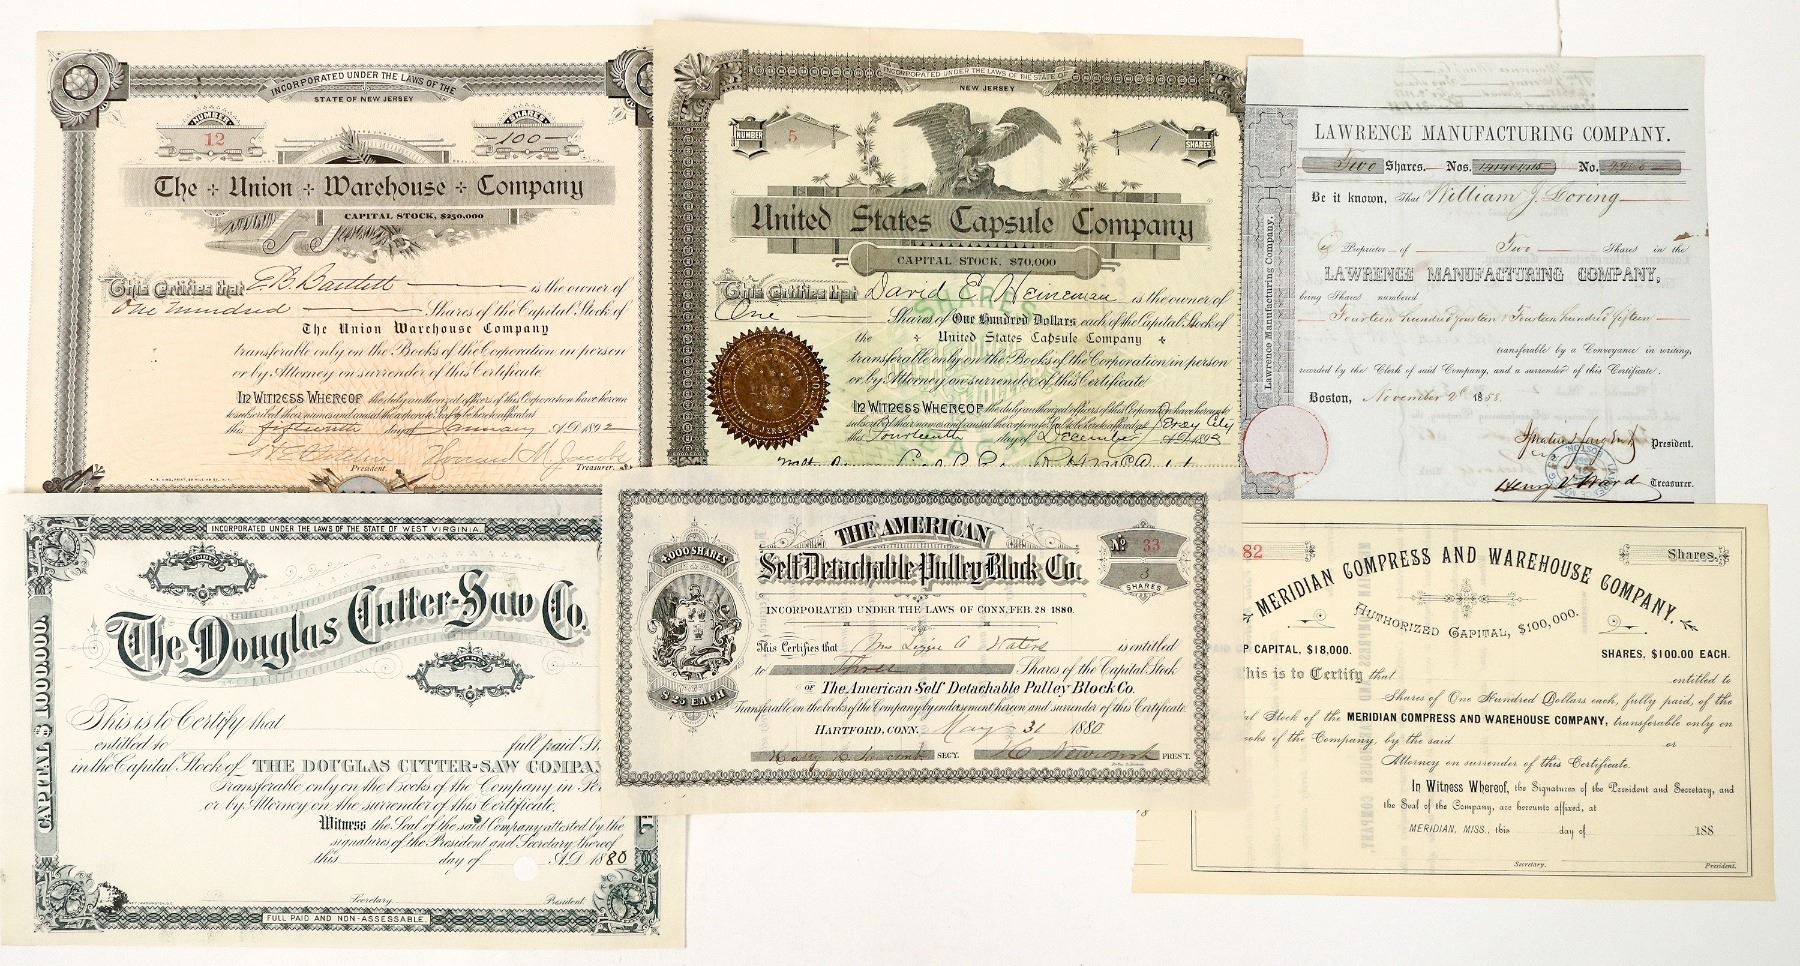 INCORPORATED UNDER THE LAWS OF THE
STATE OF NEW JERSEY
NUMBER
12
SHARES
100
The Union Warehouse Company
CAPITAL STOCK, $250,000
This Certifies that E.B. Bartlett is the owner of
One Hundred Shares of the Capital Stock of
The Union Warehouse Company
transferable only on the Books of the Corporation in person
or by Attorney on surrender of this Certificate
IN WITNESS WHEREOF the duly authorized officers of this Corporation have hereunto
subscribed their names and caused the corporate Seal to be hereto affixed at
this fifteenth day of January A.D. 1892
President.
Howard M. Jacobs
Treasurer.
INCORPORATED UNDER THE LAWS OF THE STATE OF
NEW JERSEY
NUMBER
5
1
SHARES
United States Capsule Company
CAPITAL STOCK, $70,000
This Certifies that David E. Heineman is the owner of
One Shares of One Hundred Dollars each of the Capital Stock of
the United States Capsule Company
transferable only on the Books of the Corporation in person
or by Attorney on surrender of this Certificate
IN WITNESS WHEREOF the duly authorized officers of this Corporation have hereunto
subscribed their names and caused the corporate Seal to be hereto affixed at Jersey City
this Fourteenth day of December A.D. 1893
SHARES
LAWRENCE MANUFACTURING COMPANY.
Two Shares. Nos. 1414 & 1415 No.
Be it known, That William J. Loring
is Proprietor of Two Shares in the
LAWRENCE MANUFACTURING COMPANY,
being Shares numbered
Fourteen hundred fourteen & Fourteen hundred fifteen
transferable by a Conveyance in writing,
recorded by the Clerk of said Company, and a surrender of this Certificate.
Boston, November 2d 1858.
President.
Henry V. Ward Treasurer.
Lawrence Manufacturing Company.
INCORPORATED UNDER THE LAWS OF THE STATE OF WEST VIRGINIA.
NUMBER
The Douglas Cutter-Saw Co.
SHARES
CAPITAL $1000.000.
This is to Certify that
entitled to full paid
in the Capital Stock of THE DOUGLAS CUTTER-SAW COMPAN
Transferable only on the Books of the Company in Per
or by Attorney on the surrender of this Certificate.
Witness the Seal of the said Company attested by the
signatures of the President and Secretary thereof
this day of A.D. 1880
Secretary. President.
FULL PAID AND NON-ASSESSABLE.
4,000 SHARES
$25 EACH
THE AMERICAN
Self Detachable Pulley Block Co.
No. 33
3
SHARES
INCORPORATED UNDER THE LAWS OF CONN. FEB. 28 1880.
This Certifies that Mrs Lizzie A Waters is entitled
to Three Shares of the Capital Stock
OF The American Self Detachable Pulley Block Co.
Transferable on the books of the Company by endorsement hereon and surrender of this Certificate.
HARTFORD, CONN. May 31 1880
SECY. PRES'T.
82
Shares.
MERIDIAN COMPRESS AND WAREHOUSE COMPANY.
AUTHORIZED CAPITAL, $100,000.
P CAPITAL, $18,000. SHARES, $100.00 EACH.
This is to Certify that entitled to
Shares of One Hundred Dollars each, fully paid, of the
al Stock of the MERIDIAN COMPRESS AND WAREHOUSE COMPANY, transferable only on
ooks of the Company, by the said or
Attorney on surrender of this Certificate.
In Witness Whereof, the Signatures of the President and Secretary, and
the Seal of the Company, are hereunto affixed, at
MERIDIAN, MISS., this day of 188
Secretary. President.